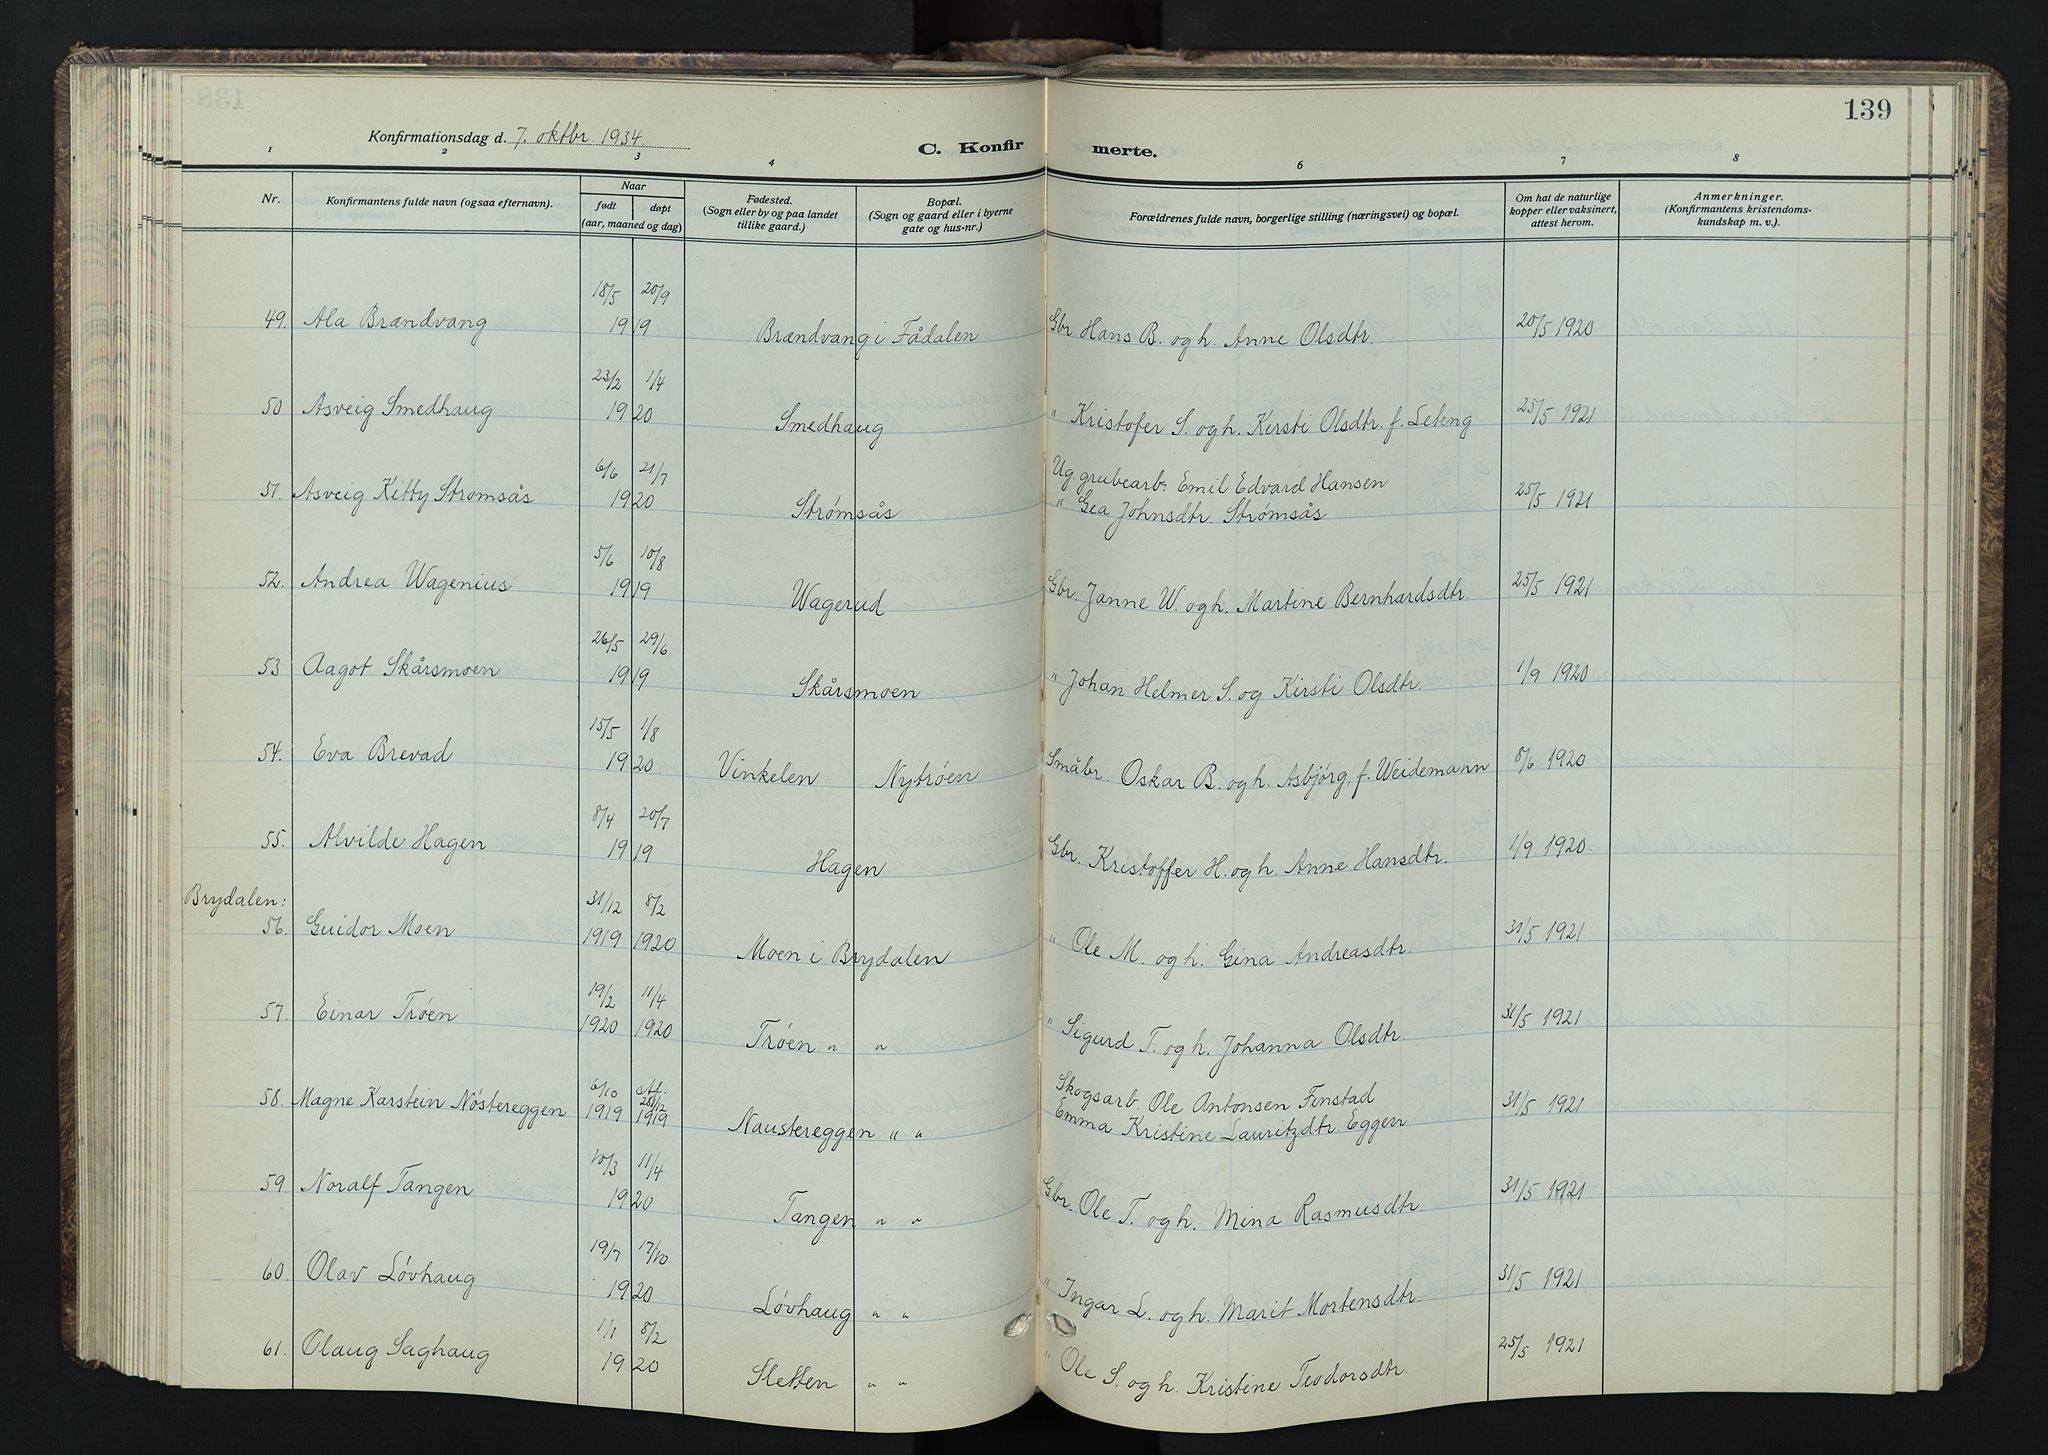 139
Konfirmationsdag d. 7. oktbr 1934.
C. Konfirmerte.
1 2 3 4 6 7 8
Nr. Konfirmantens fulde navn (ogsaa efternavn). Naar født døpt (aar, maaned og dag) Fødested. (Sogn eller by og paa landet tillike gaard.) Bopæl. (Sogn og gaard eller i byerne gate og hus-nr.) Forældrenes fulde navn, borgerlige stilling (næringsvei) og bopæl. Om hat de naturlige kopper eller vaksinert, attest herom. Anmerkninger. (Konfirmantens kristendoms-kundskap m. v.).
49. Ala Brændvang 18/5 20/9 1919 Brændvang i Fådalen Gbr. Hans B. og h. Anne Olsdtr. 20/5 1920
50 Asveig Smedhaug 23/2 1/4 1920 Smedhaug " Kristofer S. og h. Kirsti Olsdtr. f. Leteng 25/5 1921
51. Asveig Kitty Strømsås 6/6 21/7 1920 Strømsås Ug. grubearb. Emil Edvard Hansen
" Gea Johnsdtr. Strømsås 25/5 1921
52. Andrea Wagenius 5/6 10/8 1919 Wagerud Gbr. Janne W. og h. Martine Bernhardsdtr. 25/5 1921
53 Aagot Skårsmoen 26/5 29/6 1919 Skårsmoen " Johan Helmer S. og Kirsti Olsdtr. 1/9 1920
54. Eva Brevad 15/5 1/8 1920 Vinkelen Nytrøen Småbr. Oskar B. og h. Asbjørg, f. Weidemann 8/6 1920
55. Alvilde Hagen 8/4 20/7 1919 Hagen Gbr. Kristoffer H. og h. Anne Hansdtr. 1/9 1920.
Brydalen:
56. Guidor Moen 31/12 1919 8/2 1920 Moen i Brydalen " Ole M. og h. Gina Andreasdtr. 31/5 1921
57. Einar Trøen 19/2 1920 11/4 1920 Trøen " " " Sigurd T. og h. Johanna Olsdtr. 31/5 1921
58. Magne Karstein Nöstereggen 6/10 1919 stf. 28/12 1919 Naustereggen " " Skogsarb. Ole Antonsen Finstad
Emma Kristine Lauritzdtr. Eggen 31/5 1921
59 Noralf Tangen 10/3 11/4 1920 Tangen " " Gbr. Ole T. og h. Mina Rasmusdtr. 31/5 1921
60. Olav Løvhaug 19/7 17/10 1920 Løvhaug " " " Ingar L. og h. Marit Mortensdtr. 31/5 1921
61. Olaug Saghaug 1/1 8/2 1920 Sletten " " " Ole S. og h. Kristine Teodorsdtr. 25/5 1921